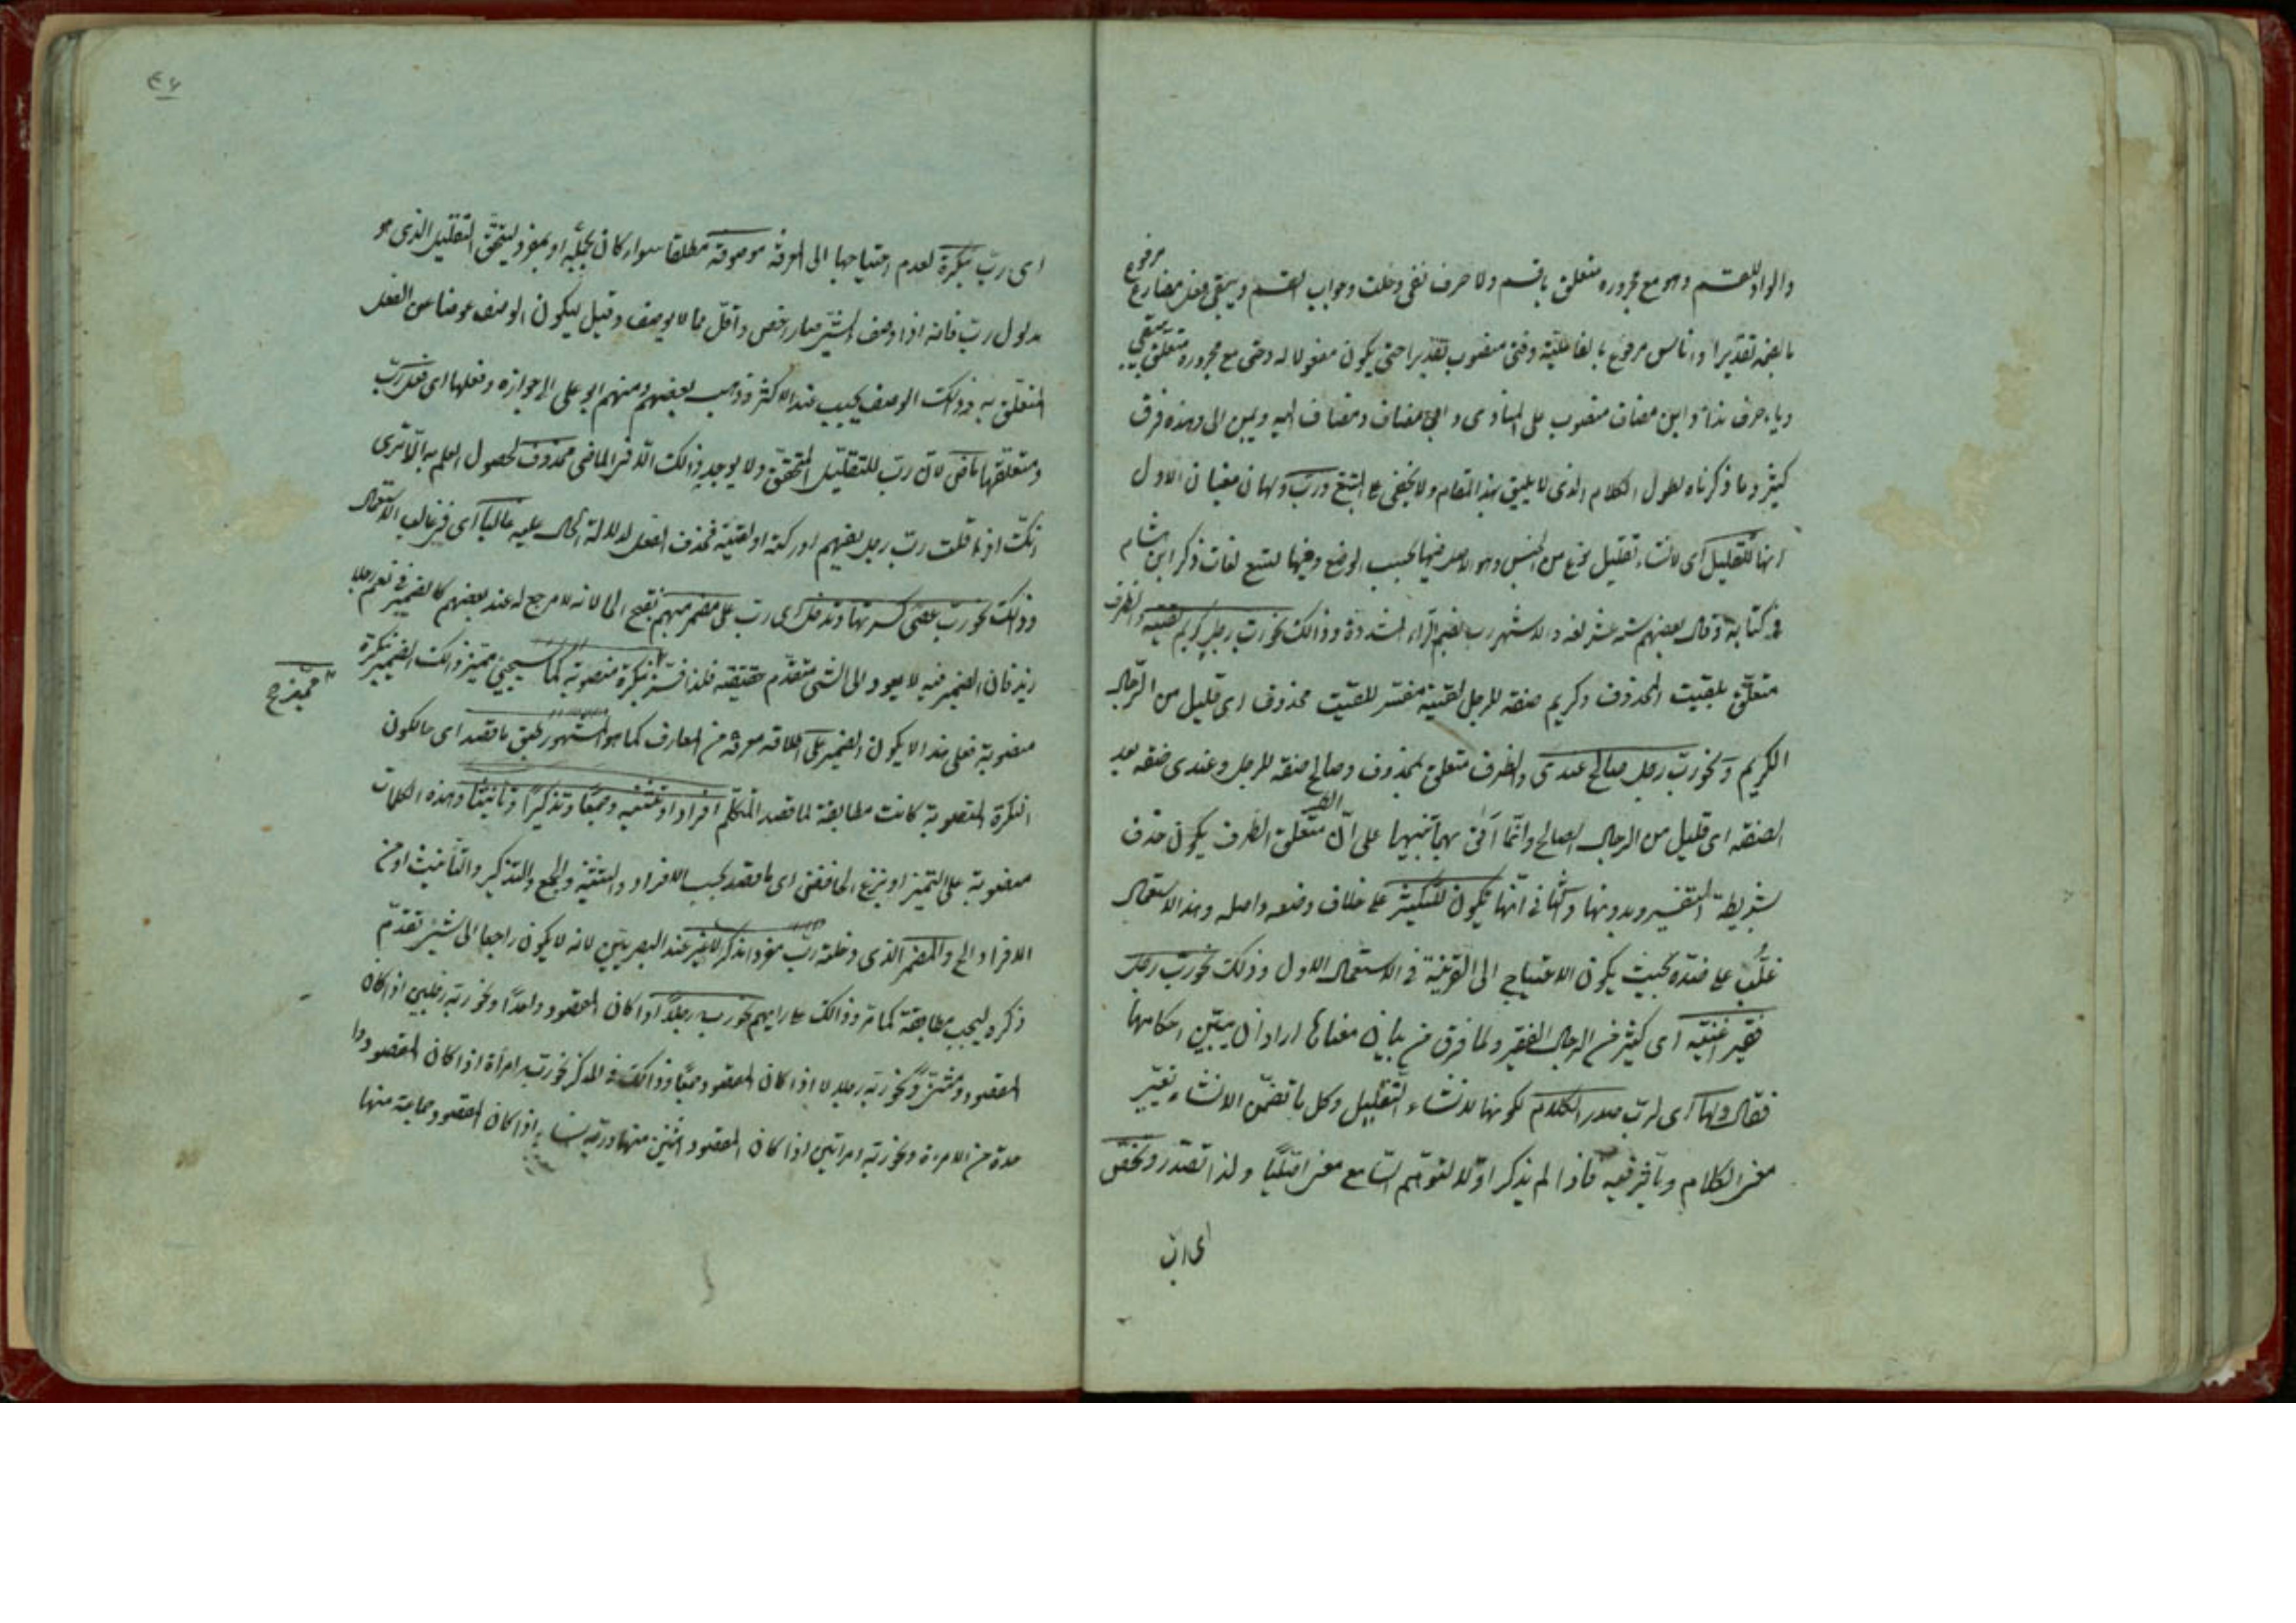 والواو للقسم وهو مع مجروره متعلق باقسم ولا حرف نفى دخلت وجواب القسم ويبقى فعل مضارع مرفوع
بالضمة تقديرا واناس مرفوع بالفاعلية وفتى منصوب تقديرا حتى يكون مفعولا له وحتى مع مجروره متعلق بيبقى
وياء حرف نداء وابن مضاف منصوب على المنادى و ابى مضاف ومضاف اليه وبين الى وهذه فرق
كثير وما ذكرناه لطول الكلام الذى لا يليق بهذا المقام ولا يخفى على المتتبع ورب ولها معنيان الاول
انها للتقليل اى لانشاء تقليل نوع من الجنس وهو الاصل فيها بحسب الوضع وفيها لغات ذكر ابن هشام
فى كتابه وقال بعضهم ستة عشر لغة والاشهر رب بضم الراء المشددة وذالك نحو رب رجل كريم لقيته والظرف
متعلق بلقيت المحذوف وكريم صفة للرجل لقيته مفسر للقيت محذوف اى قليل من الرجال
الكريم ونحو رب رجل صالح عندى والظرف متعلق بمحذوف وصالح صفة للرجل وعندى صفة بعد
الصفة اى قليل من الرجال الصالح وانما اتى بهما تنبيها على ان متعلق الظرف يكون حذف
بشريطة التفسير وبدونها والثانى انها تكون للتكثير على خلاف وضعه واصله وهذا الاستعمال
غلب على ضده بحيث يكون الاحتياج الى القرينة فى الاستعمال الاول وذلك نحو رب رجل
فقير اغنيته اى كثير من الرجال الفقير ولما فرق من بيان معناها اراد ان يبين احكامها
فقال ولها اى لرب صدر الكلام لكونها لانشاء التقليل وكل ما تضمن الانشاء تغيير
معنى الكلام ويأثر فيه فاذا لم يذكر اولا لتوهم السامع معنى ولذا تصدر وتختص
اى رب
اى رب بنكرة لعدم احتياجها الى المعرفة موصوفة مطلقا سواء كان بجملة او بمفرد ليتحقق التقليل الذى هو
مدلول رب فانه اذا وصف الشئ صار اخص واقل مما لا يوصف وقيل ليكون الوصف عوضا من الفعل
المتعلق به وذالك الوصف يجب عند الاكثر وذهب بعضهم ومنهم ابو على الى جوازه وفعلها اى فعل رب
ومتعلقها ماض لان رب للتقليل المتحقق ولا يوجد ذالك الا فى الماضى محذوف لحصول العلم به الا ترى
انك اذا قلت رب رجل يفهم ادركته او لقيته فحذف الفعل لدلالة الحال عليه غالبا اى فى غالب الاستعمال
وذالك نحو رب وتدخل اى رب على مضمر مبهم لانه لا مرجع له عند بعضهم كالضمير فى نعم رجلا
زيد فان الضمير فيه لا يعود الى الشئ متقدم حقيقة فلذا فسر بنكرة منصوبة كما سيجيئ مميز ذالك الضمير نكرة
مميزه صح
منصوبة فعلى هذا لا يكون الضمير على اطلاقه معرفة من المعارف كما هو المشهور طبق ما قصد اى مالكون
النكرة المنصوبة كانت مطابقة لما قصد المتكلم افرادا وتثنية وجمعا وتذكيرا وتأنيثا وهذه الكلمات
منصوبة على التميز او بنزع الخافض اى ما قصد بحسب الافراد والتثنية والجمع والتذكير والتأنيث او من
الافراد الخ والمضمر الذى دخلته رب مفرد مذكر لا غير عند البصريين لانه لا يكون راجعا الى شئ تقدم
ذكره ليجب مطابقة كما مر وذالك على رايهم نحو ربه رجلا اذا كان المقصود واحدا ونحو ربه رجلين اذا كان
المقصود مثنى ونحو ربه رجالا اذا كان المقصود جمعا وذالك فى المذكر نحو ربه امرأة اذا كان المقصود
من الامرءة ونحو ربه امرأتين اذا كان المقصود اثنين منها وربه نساء اذا كان المقصود جماعة منها